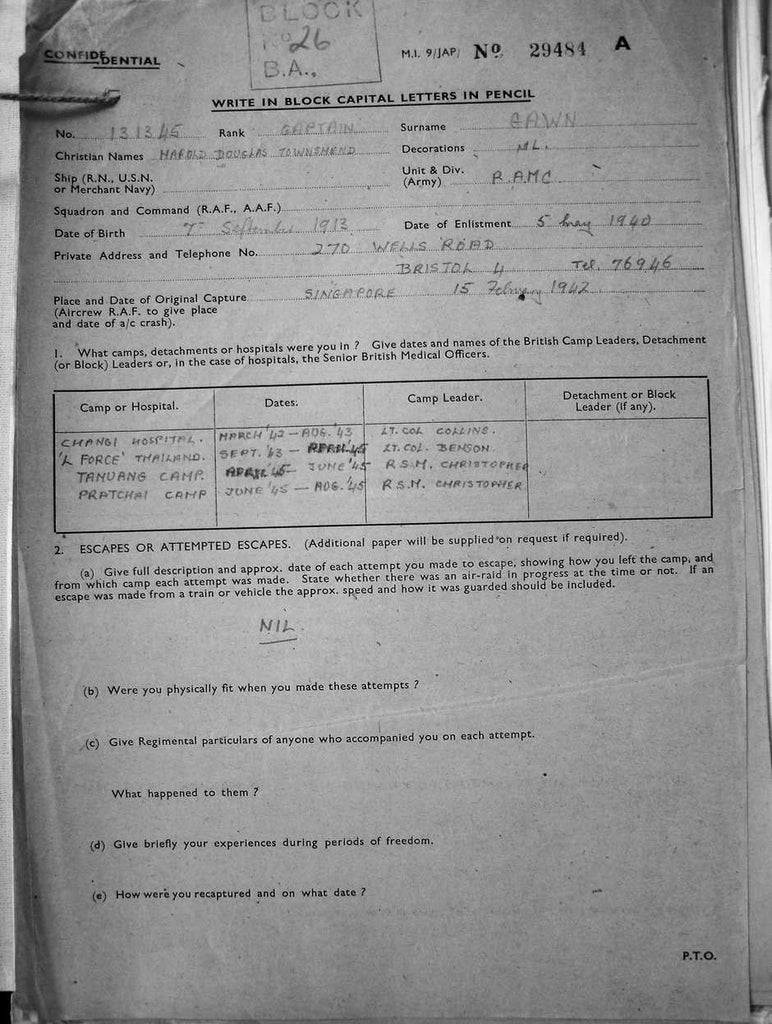 BLOCK
No 26
B.A.,
CONFIDENTIAL
M.I. 9/JAP/ No. 29484 A
WRITE IN BLOCK CAPITAL LETTERS IN PENCIL
No. 131345 Rank CAPTAIN Surname CAWN
Christian Names HAROLD DOUGLAS TOWNSHEND Decorations NIL.
Ship (R.N., U.S.N. or Merchant Navy) Unit & Div. (Army) R.A.M.C.
Squadron and Command (R.A.F., A.A.F.)
Date of Birth 7th September 1913 Date of Enlistment 5 May 1940
Private Address and Telephone No. 270 WELLS ROAD
BRISTOL 4 Tel. 76946
Place and Date of Original Capture SINGAPORE 15 February 1942
(Aircrew R.A.F. to give place
and date of a/c crash).
1. What camps, detachments or hospitals were you in ? Give dates and names of the British Camp Leaders, Detachment
(or Block) Leaders or, in the case of hospitals, the Senior British Medical Officers.
Camp or Hospital. Dates. Camp Leader. Detachment or Block Leader (if any).
CHANGI HOSPITAL. MARCH '42 — AUG. '43 LT. COL COLLINS.
'L FORCE' THAILAND. SEPT. '43 — APRIL '45 LT. COL. BENSON.
TANUANG CAMP. APRIL '45 — JUNE '45 R.S.M. CHRISTOPHER
PRATCHAI CAMP JUNE '45 — AUG. '45 R.S.M. CHRISTOPHER
2. ESCAPES OR ATTEMPTED ESCAPES. (Additional paper will be supplied on request if required).
(a) Give full description and approx. date of each attempt you made to escape, showing how you left the camp, and
from which camp each attempt was made. State whether there was an air-raid in progress at the time or not. If an
escape was made from a train or vehicle the approx. speed and how it was guarded should be included.
NIL.
(b) Were you physically fit when you made these attempts ?
(c) Give Regimental particulars of anyone who accompanied you on each attempt.
What happened to them ?
(d) Give briefly your experiences during periods of freedom.
(e) How were you recaptured and on what date ?
P.T.O.